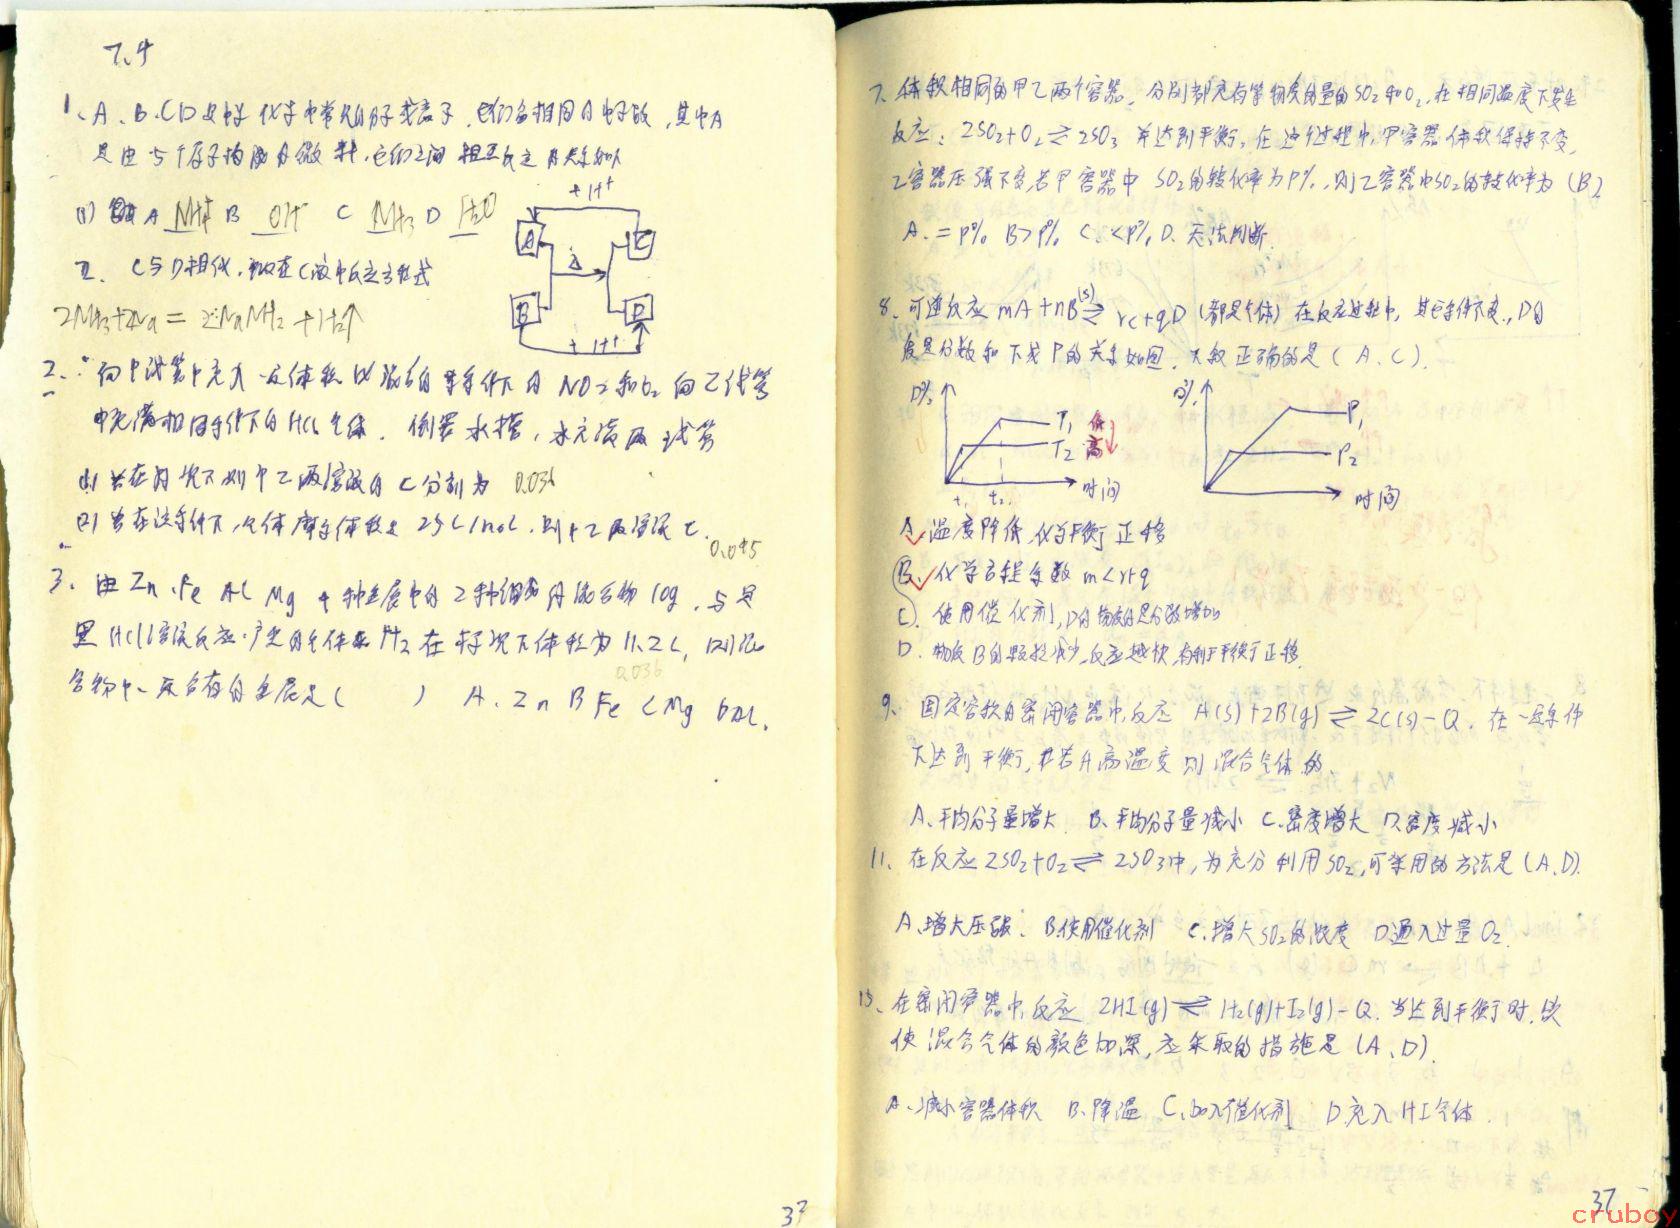 7.4
1、A、B、C、D 是中学化学中常见的分子或离子,它们有相同的电子数,其中A
是由5个原子构成的微粒,它们之间相互反应的关系如下
+H+
(1) 写出 A NH4+ B OH- C NH3 D H2O
A C
Δ
B D
+H+
2. C与D相似,
2NH3+2Na = 2NaNH2 + H2↑
2. 向甲试管中充入一定体积以混合的等条件下的 NO2 和O2 向乙试管
中充满相同条件下的HCl气体. 倒置水槽,水充满两试管
(1) 若在标况下则甲乙两溶液的C分别为 0.036
(2) 若在该条件下,气体摩尔体积是 25L/mol. 则甲乙两溶液C.
0.045
3. 由 Zn、Fe Al Mg 4种金属中的2种组成的混合物10g,与足
量HCl溶液反应,产生的气体H2在标况下体积为11.2L,则混
0.036
合物中一定含有的金属是( ) A. Zn B Fe C Mg D Al.
37
7、体积相同的甲乙两个容器,分别都充有等物质的量的SO2和O2,在相同温度下发生
反应:2SO2+O2⇌2SO3 并达到平衡,在这个过程中,甲容器体积保持不变,
乙容器压强不变,若甲容器中SO2的转化率为P%,则乙容器中SO2的转化率为(B)
A. =P% B >P% C. <P% D. 无法判断.
8、可逆反应 mA+nB(s)⇌rC+qD(都是气体)在反应过程中,其它条件不变,D的
质量分数和下或P的关系如图,下叙正确的是(A、C).
D% T1 低 T2 高 t1 t2 时间
D% P1 P2 时间
A、温度降低,化学平衡正移
B、化学方程系数 m<r+q
C、使用催化剂,D的物质的量分数增加
D. 物质B的颗粒减少,反应越快,有利于平衡正移.
9、固定容积的密闭容器中,反应 A(s)+2B(g)⇌2C(s)-Q. 在一定条件
下达到平衡,若升高温度则混合气体的.
A、平均分子量增大 B、平均分子量减小 C、密度增大 D、密度减小
11、在反应2SO2+O2⇌2SO3中,为充分利用SO2,可采用的方法是(A、D).
A、增大压强. B、使用催化剂 C、增大SO2的浓度 D、通入过量O2.
13、在密闭容器中,反应 2HI(g)⇌H2(g)+I2(g)-Q. 当达到平衡时,欲
使混合气体的颜色加深,应采取的措施是(A、D).
A、减小容器体积 B、降温 C、加入催化剂 D、充入HI气体.
37
cruboy